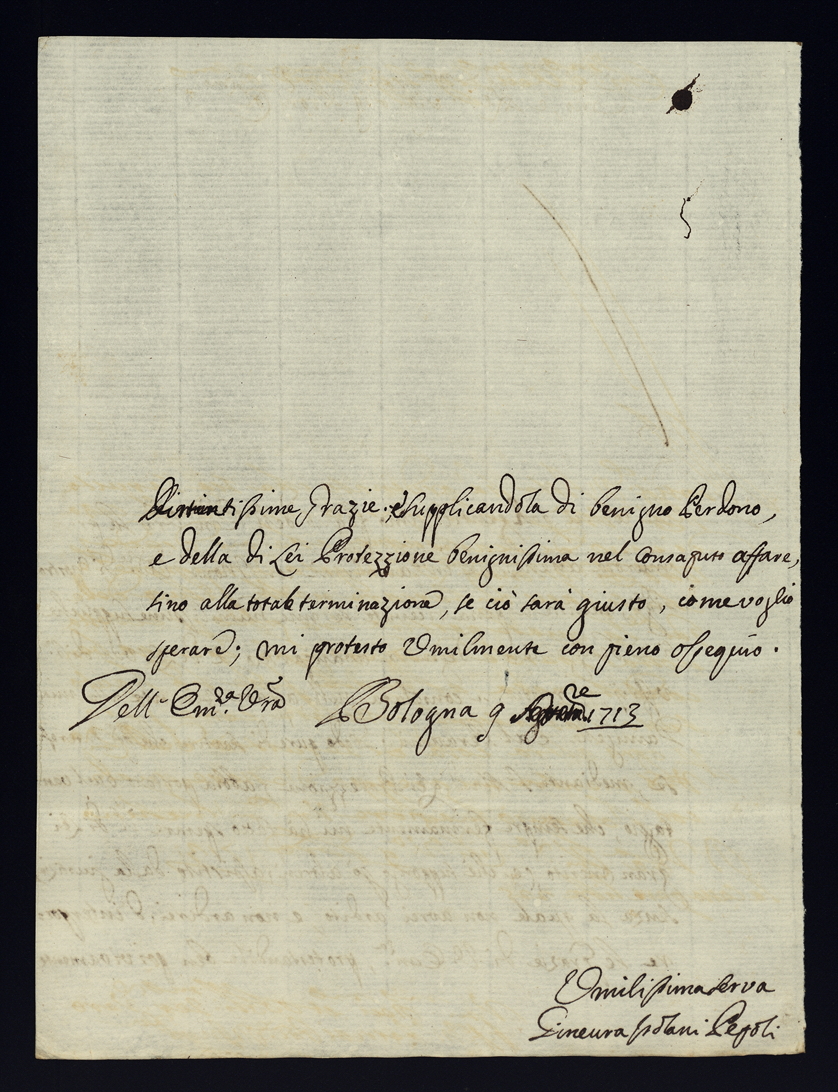 Distintissime Grazie. e supplicandola di benigno Perdono,
e della di Lei Protezzione benignissima nel consaputo affare,
sino alla totale terminazione, se ciò sarà giusto, come voglio
sperare; mi protesto Umilmente con pieno ossequio.
Dell' Em.za Vra Bologna 9 1713
Umilissima serva
Gineura Isolani Pepoli